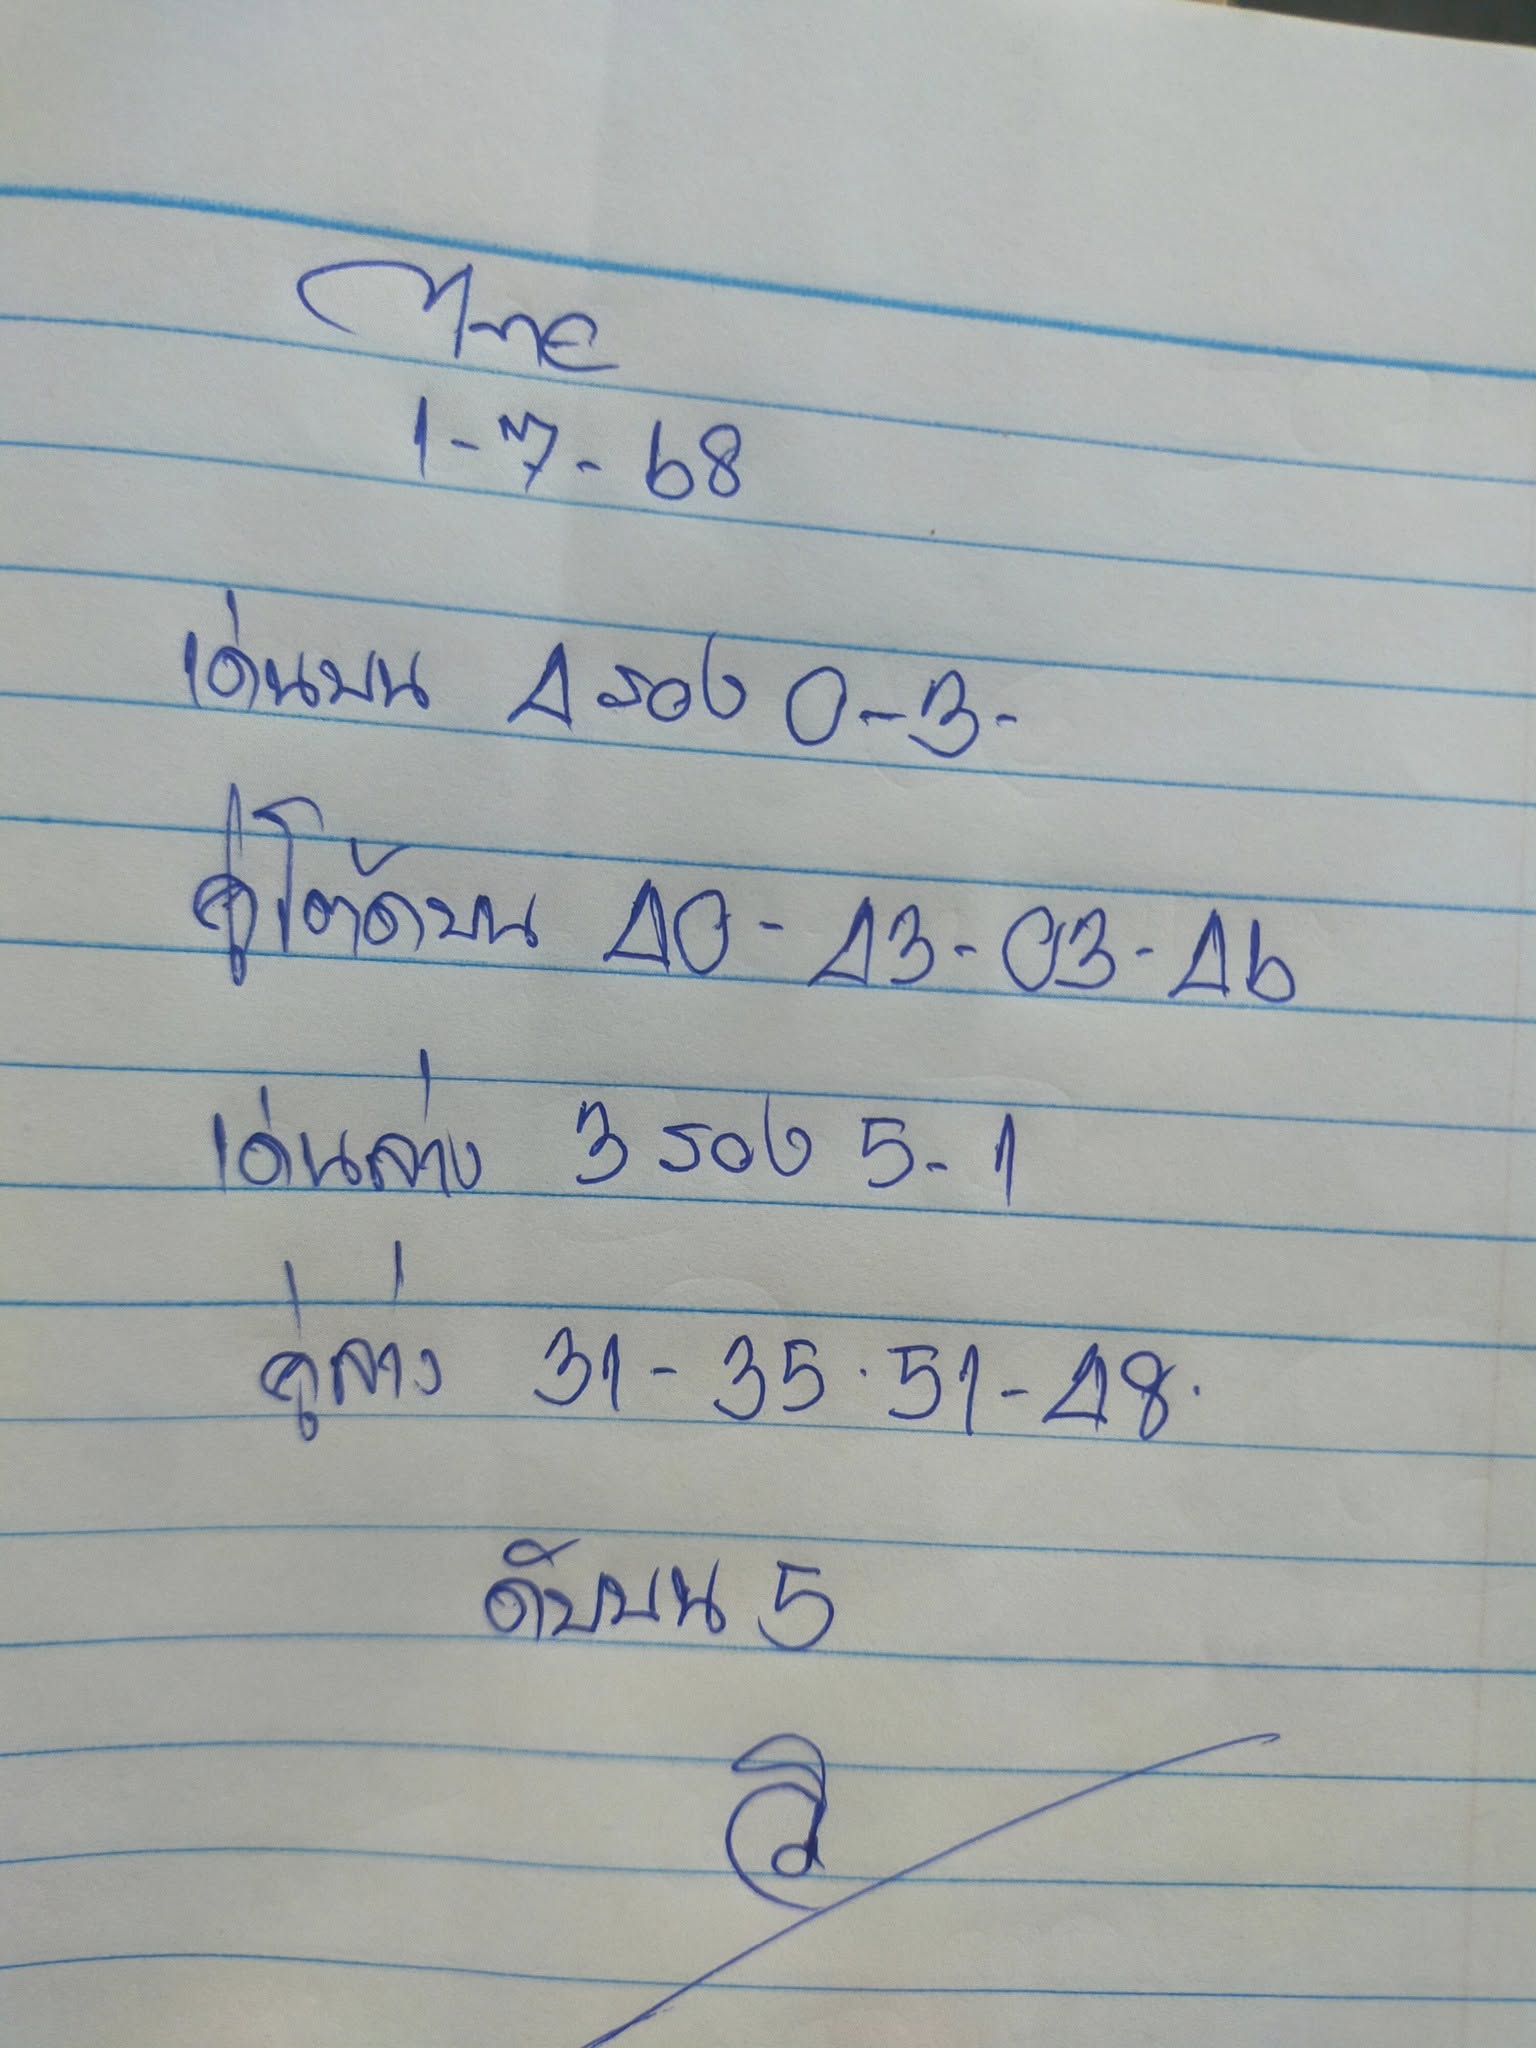 ไทย
1-7-68
เด่นบน 4 รอง 0-3-
คู่โต๊ดบน 40-43-03-46
เด่นล่าง 3 รอง 5-1
คู่ล่าง 31-35.51-48.
ดับบน 5